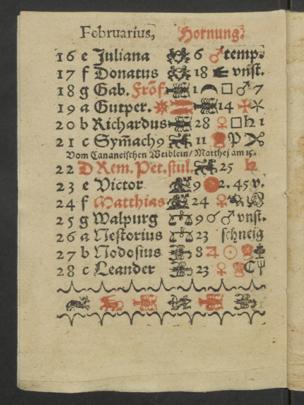 Februarius, Hornung?
16 e Juliana 6 ♂ temp.
17 f Donatus 18 vnst.
18 g Gab. Fröf. 1 ☽ □ ♂ 7
19 a Gutper. 14
20 b Richardus 28 ♀ □ 1
21 c Sym̃ach9 11 P
Vom Cananeischen Weiblein/ Matthej am 15.
22 D Rem. Pet. stul. 25
23 e Victor 9 2.45 v.
24 f Matthias 24 ♀
25 g Walpurg 9 ☌ ♂ vnst.
26 a Nestorius 23 schneig
27 b Nodosius 8 ♃ ☉
28 c Leander 23 ♀